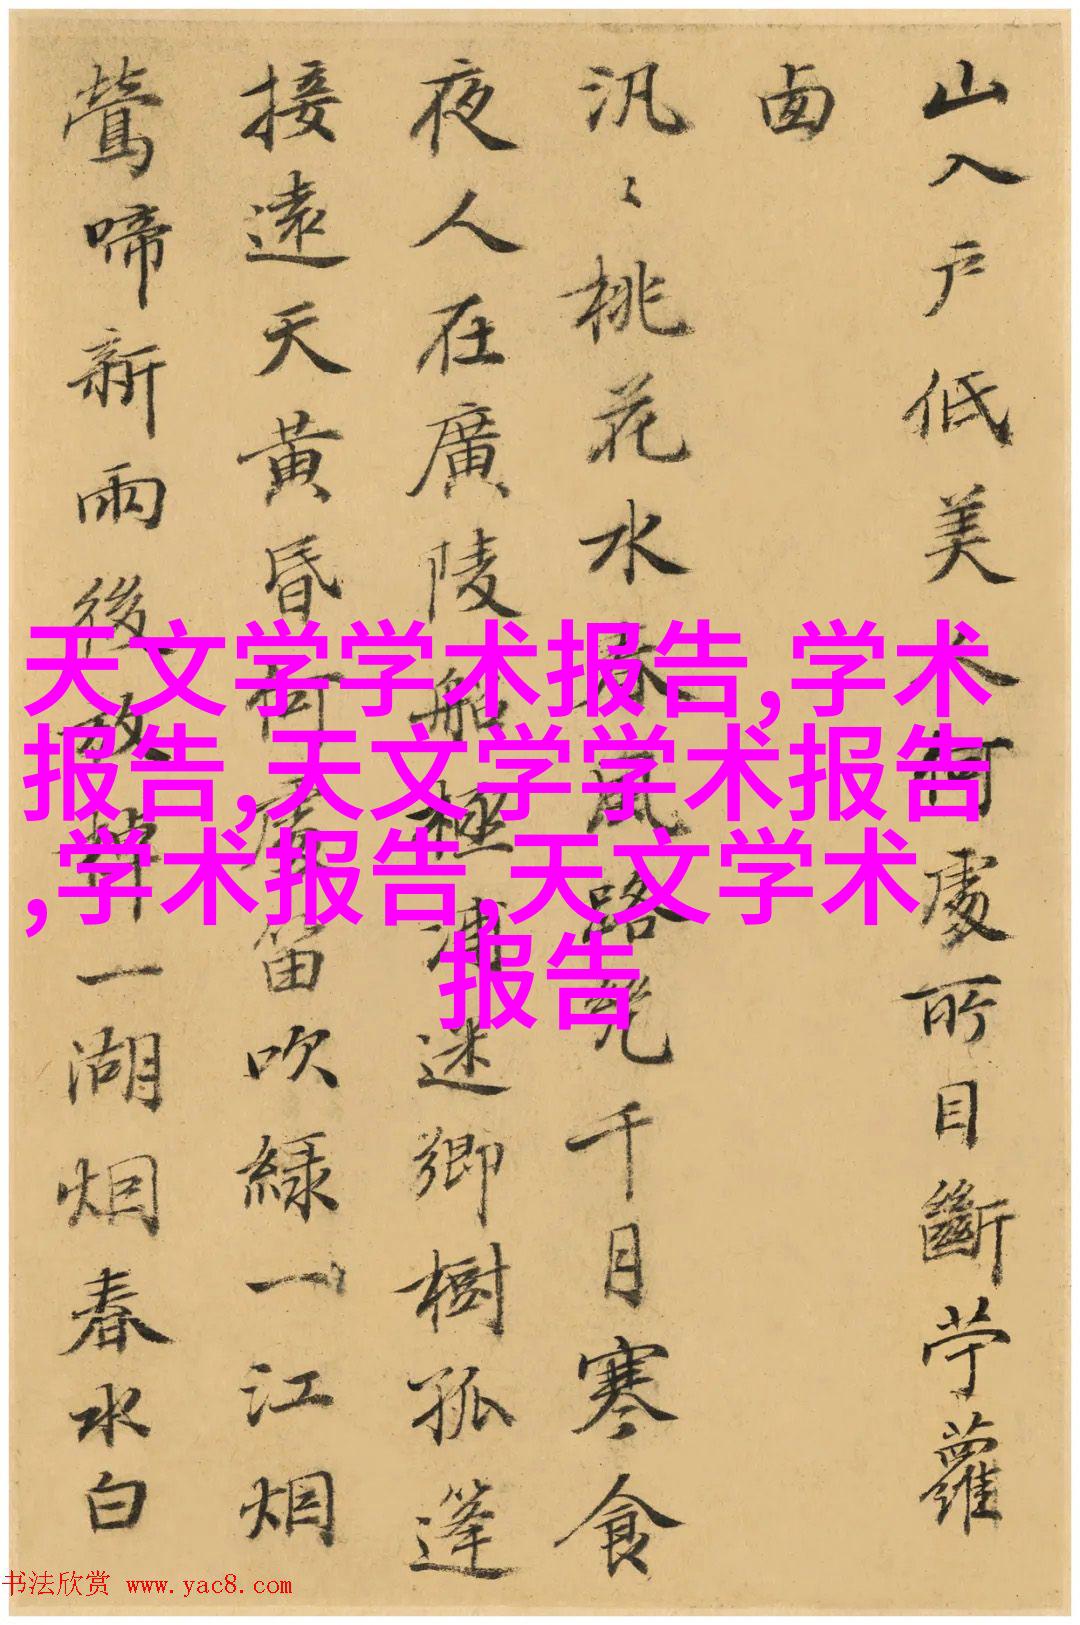 山入戶低美人何處所目斷苧蘿
西
汎〻桃花水風路幾千月寒食
夜人在廣陵船極浦迷鄉樹孤篷
接遠天黃昏何處笛吹綠一江烟
鶯啼新雨後放棹一湖烟春水白
天文学学术报告,学术
报告,天文学学术报告
,学术报告,天文学术
报告
书法欣赏 www.yac8.com